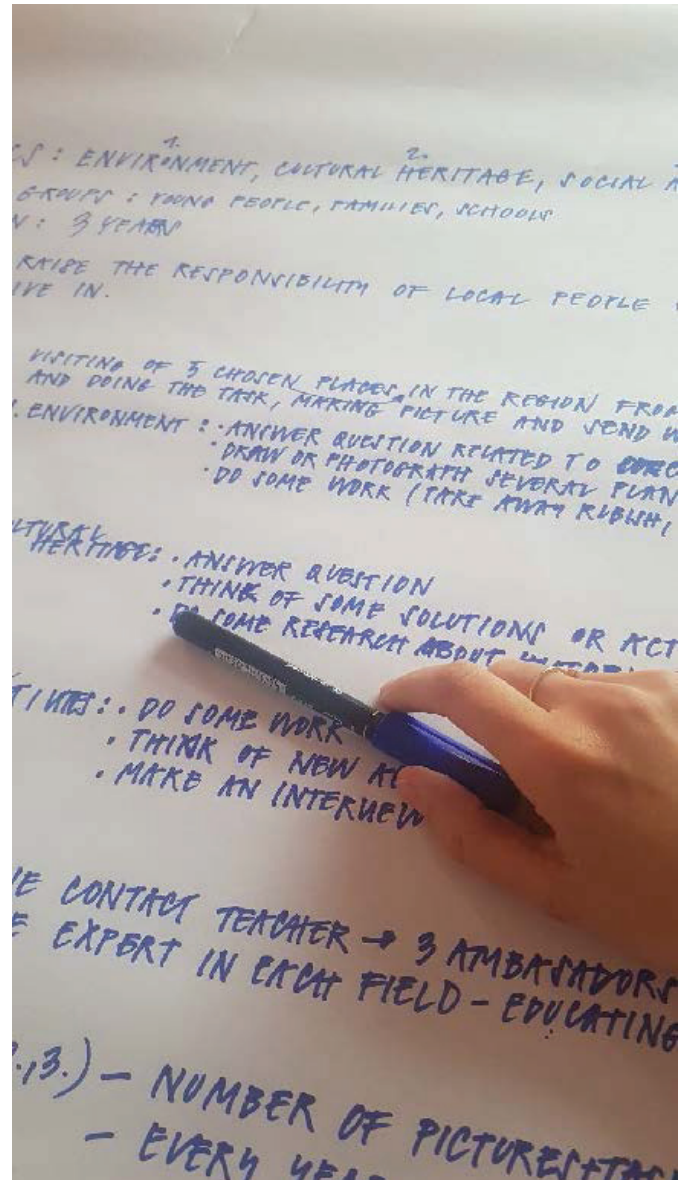 1. 2.
CS: ENVIRONMENT, CULTURAL HERITAGE, SOCIAL A
GROUPS: YOUNG PEOPLE, FAMILIES, SCHOOLS
N: 3 YEARS
RAISE THE RESPONSIBILITY OF LOCAL PEOPLE
IVE IN.
VISITING OF 5 CHOSEN PLACES IN THE REGION FROM
AND DOING THE TASK, MAKING PICTURE AND SEND
. ENVIRONMENT: · ANSWER QUESTION RELATED TO
· DRAW OR PHOTOGRAPH SEVERAL PLAN
· DO SOME WORK (TAKE AWAY RUBISH,
LTURAL
HERITAGE: · ANSWER QUESTION
· THINK OF SOME SOLUTIONS OR ACT
· DO SOME RESEARCH ABOUT
· DO SOME WORK
· THINK OF NEW AC
· MAKE AN INTERVIEW
E CONTACT TEACHER → 3 AMBASADORS
E EXPERT IN EACH FIELD - EDUCATING
.,3.) - NUMBER OF PICTURES+TAS
- EVERY YEA